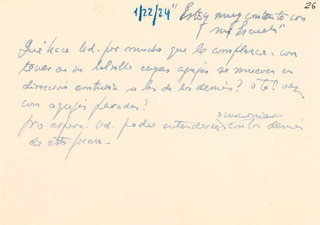 26
1/22/24 "Estoy muy contento con
mi Escuela"
Qué hace Ud. por mucho que le complazca, con
en su bolsillo cuyas agujas se mueven en
dirección contraria a las de los demás? o tal vez
con agujas paradas?
No espera Ud. poder entenderse con los demás
de esta forma.